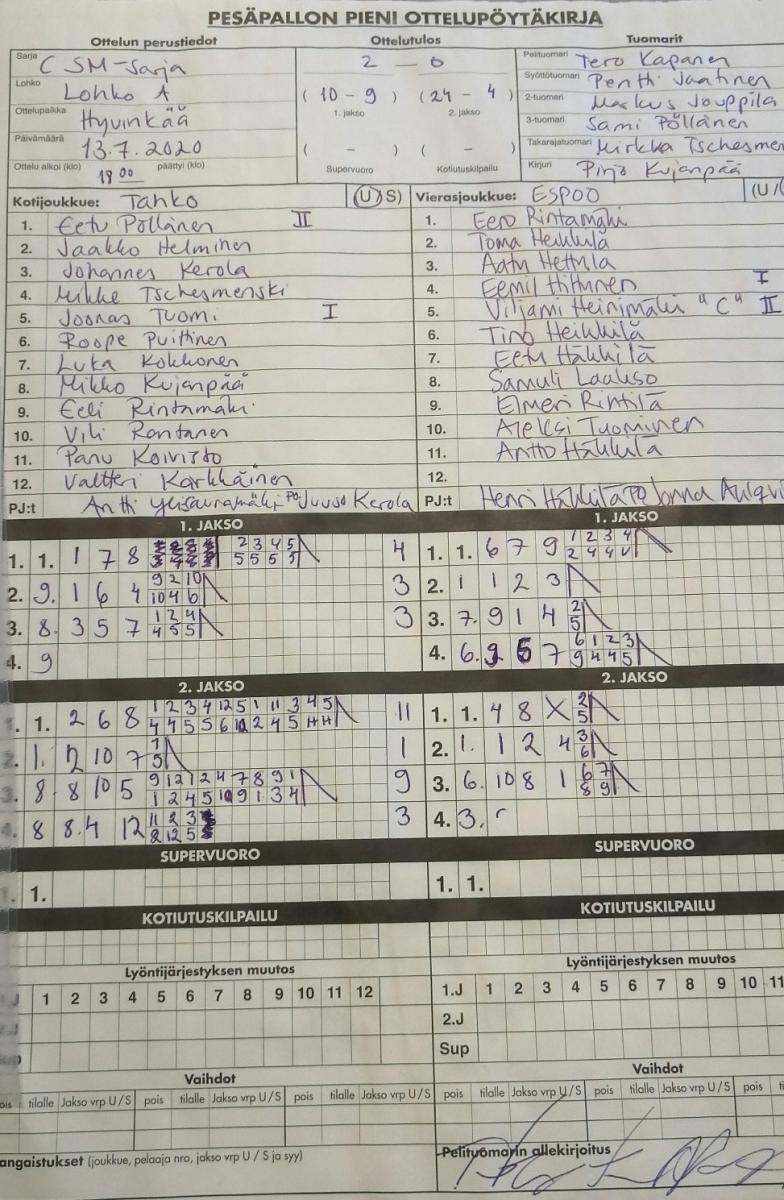 PESÄPALLON PIENI OTTELUPÖYTÄKIRJA
Ottelun perustiedot Ottelutulos Tuomarit
Sarja C SM-Sarja 2 - 0 Pelituomari Tero Kapanen
Lohko Lohko A (10 - 9) (24 - 4) Syöttötuomari Pentti Jaatinen
1. jakso 2. jakso
Ottelupaikka Hyvinkää 2-tuomari Markus Jouppila
Päivämäärä 13.7.2020 ( - ) ( - ) 3-tuomari Sami Pöllänen
Takarajatuomari Mirkka Tschesmen
Ottelu alkoi (klo) 18 00 päättyi (klo) Supervuoro Kotiutuskilpailu Kirjuri Pirjo Kujanpää
Kotijoukkue: Tahko (U/S) Vierasjoukkue: ESPOO (U/
1. Eetu Pöllänen II 1. Eero Rintamäki
2. Jaakko Helminen 2. Toma Heikkilä
3. Johannes Kerola 3. Aatu Hettula
4. Mikke Tschesmenski 4. Eemil Hittunen I
5. Joonas Tuomi I 5. Viljami Heinimäki "C" II
6. Roope Puittinen 6. Tino Heikkilä
7. Luka Kokkonen 7. Eetu Häkkilä
8. Mikko Kujanpää 8. Samuli Laakso
9. Eeli Rintamäki 9. Elmeri Rintilä
10. Vili Rantanen 10. Aleksi Tuominen
11. Panu Koivisto 11. Antto Häkkilä
12. Valtteri Karkkäinen 12.
PJ:t Antti Juuso Kerola PJ:t Henri Häkkilä PJ Jonna
1. JAKSO 1. JAKSO
1. 1. 1 7 8 2 3 4 5 4 1. 1. 6 7 9 1 2 3 4
5 5 5 5 2 4 4
2. 9. 1 6 4 9 2 10 3 2. 1 1 2 3
10 4 6
3. 8. 3 5 7 1 2 4 3 3. 7. 9 1 4 2
4 5 5 5
4. 9 4. 6. 5 7 6 1 2 3
9 4 4 5
2. JAKSO 2. JAKSO
1. 1. 2 6 8 1 2 3 4 12 5 1 11 3 4 5 11 1. 1. 4 8 X 2
4 4 5 5 6 2 4 5 5
2. 1. 2 10 7 1 1 2. 1. 1 2 4 3
5 6
3. 8. 8 10 5 9 12 1 2 4 7 8 9 1 9 3. 6. 10 8 1 6 7
1 2 4 5 10 9 1 3 4 8 9
4. 8 8. 4 12 11 2 3 3 4. 3.
2 12 5
SUPERVUORO SUPERVUORO
1. 1. 1.
KOTIUTUSKILPAILU KOTIUTUSKILPAILU
Lyöntijärjestyksen muutos Lyöntijärjestyksen muutos
J 1 2 3 4 5 6 7 8 9 10 11 12 1.J 1 2 3 4 5 6 7 8 9 10 11
2.J
Sup
Vaihdot Vaihdot
ois tilalle Jakso vrp U / S pois tilalle Jakso vrp U / S pois tilalle Jakso vrp U / S pois tilalle Jakso vrp U / S pois tilalle Jakso vrp U / S pois til
angaistukset (joukkue, pelaaja nro, jakso vrp U / S ja syy) Pelituomarin allekirjoitus